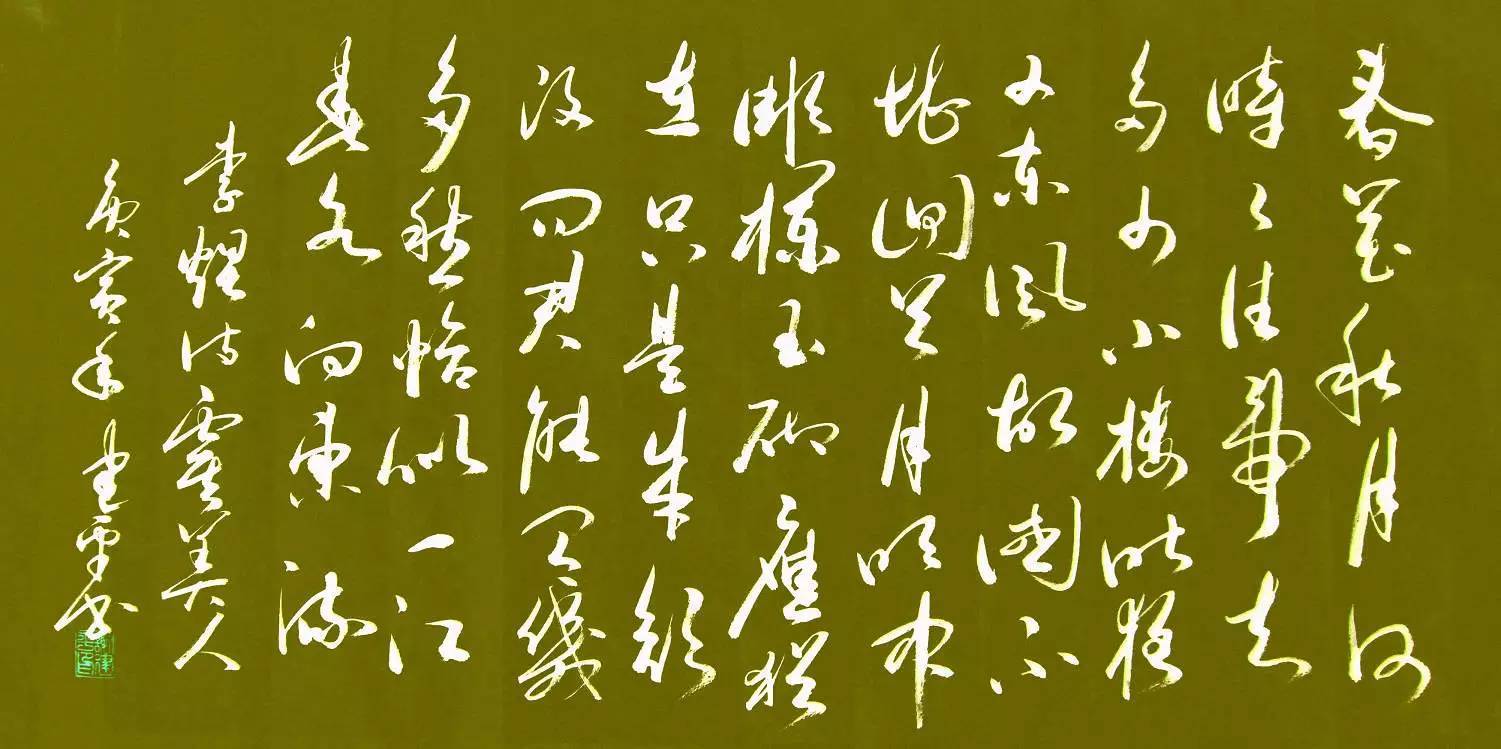 春花秋月何
時了往事知
多少小樓昨夜
又東風故國不
堪回首月明中
雕欄玉砌應猶
在只是朱顏
改問君能有幾
多愁恰似一江
春水向東流
李煜詩虞美人
庚寅年書